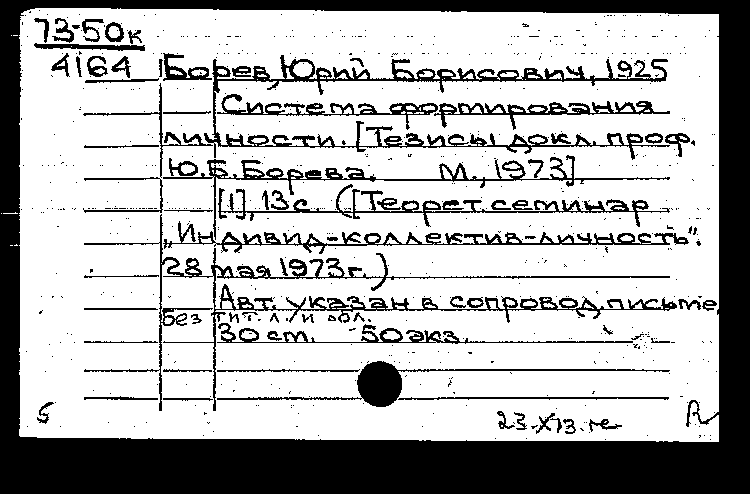 73-50к
4164 Борев, Юрий Борисович, 1925
Система формирования
личности. [Тезисы докл. проф.
Ю.Б. Борева. М., 1973].
[1], 13 с. ([Теорет. семинар
„Индивид-коллектив-личность".
28 мая 1973г.).
Авт. указан в сопровод. письме
без тит. л. и обл.
30 ст. 50 экз.
5 23.X73.